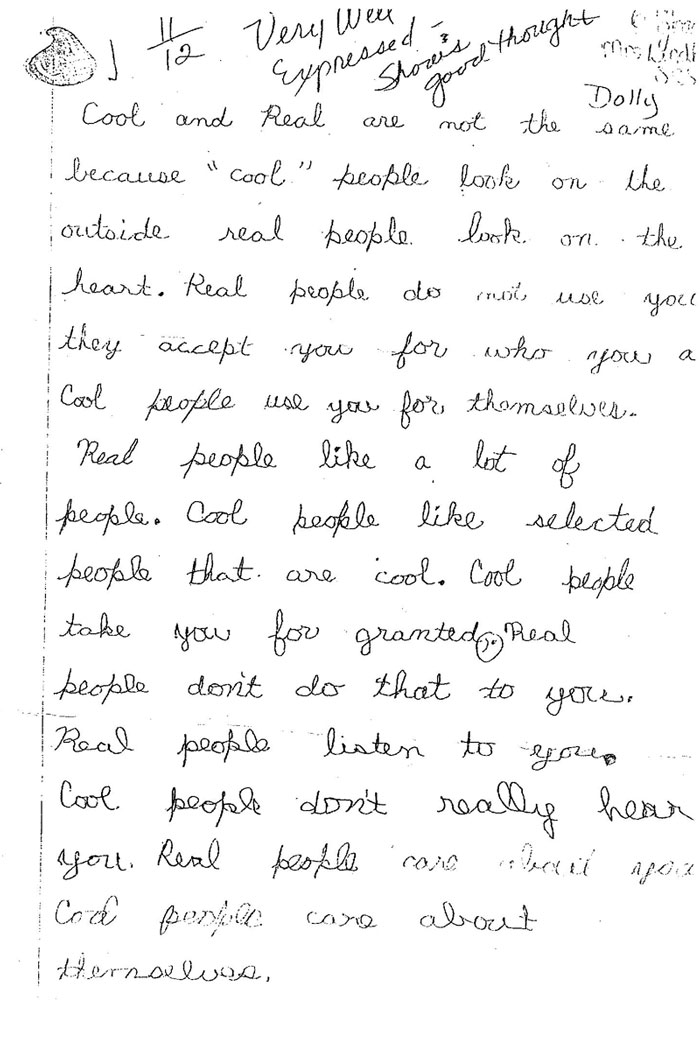 11/12 Very Well
Expressed -
& Shows
good thought
Dolly
Cool and Real are not the same
because "cool" people look on the
outside real people look on the
heart. Real people do not use you
they accept you for who you a
Cool people use you for themselves.
Real people like a lot of
people. Cool people like selected
people that are cool. Cool people
take you for granted. Real
people don't do that to you.
Real people listen to you.
Cool people don't really hear
you. Real people care about you
Cool people care about
themselves.